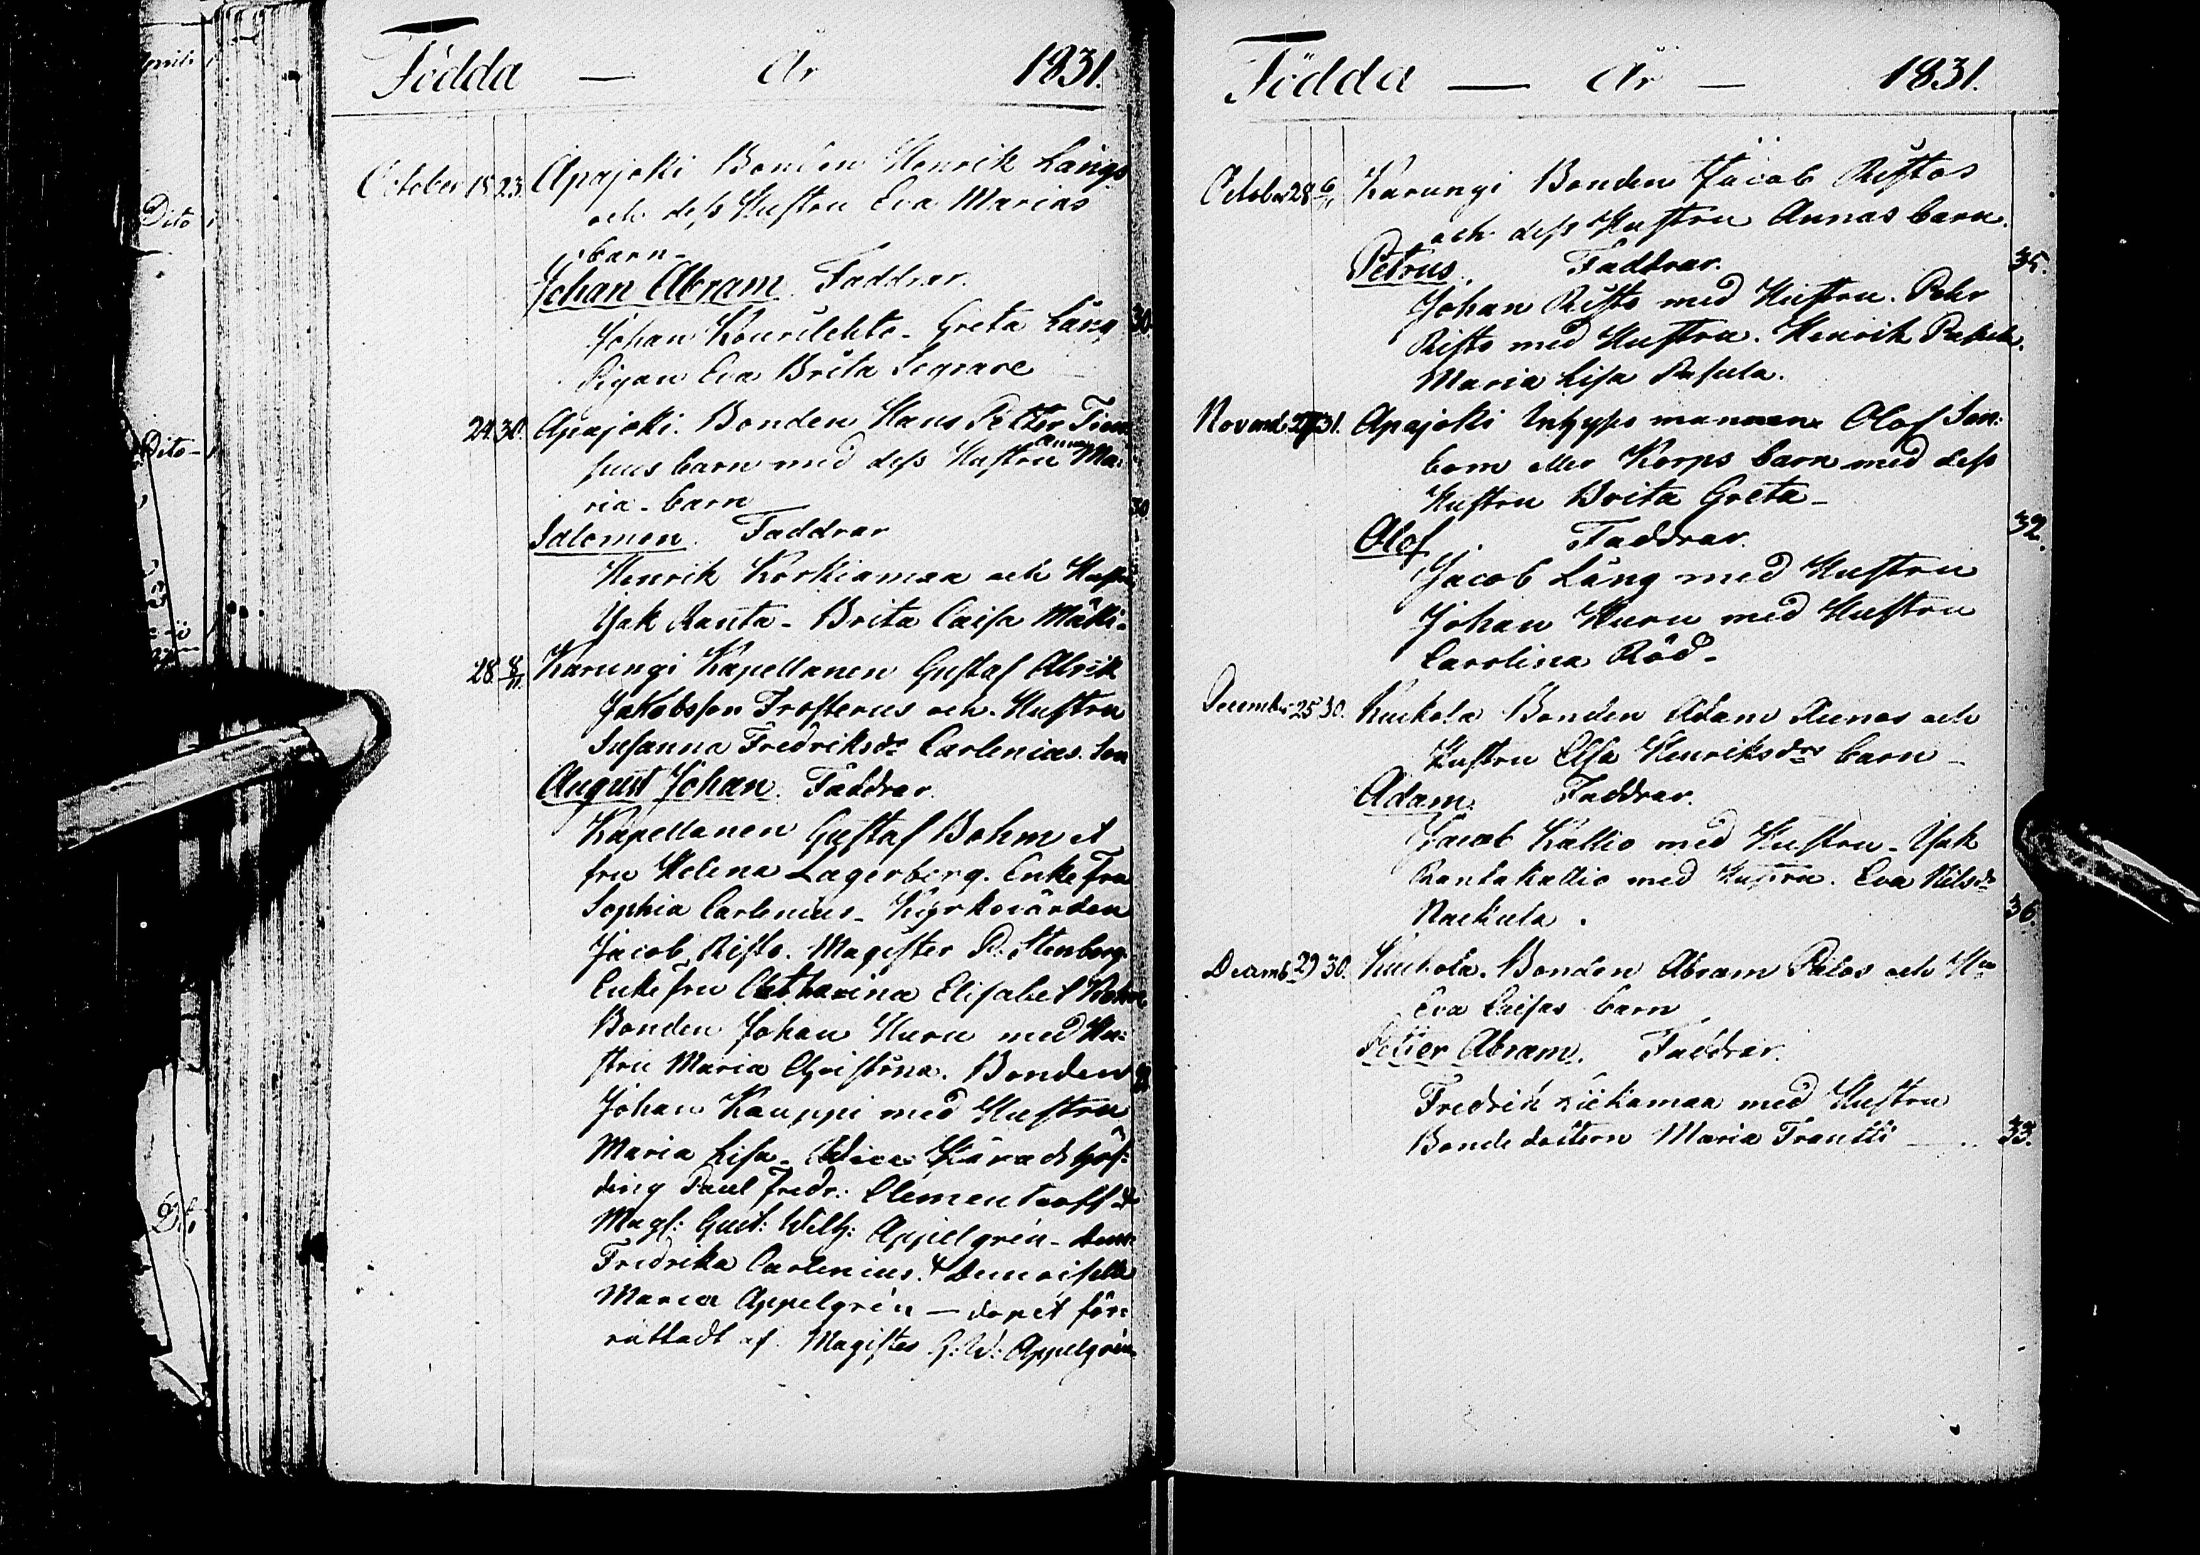 Födda — År 1831.
October 18. 23. Apajoki Bonden Henrik Längs
och dess Hustru Eva Marias
barn –
Johan Abram. Faddrar.
Johan Kourilehto – Greta Läng 30.
Pigan Eva Brita Segrare
24. 30. Apajoki. Bonden Hans Petter
barn med dess Hustru Anna Ma:
ria – barn 30.
Salomon. Faddrar
Henrik Korkiamaa och Hustru
Isak Ranta – Brita Caisa Mäki –
28. 8/11. Karungi Kapellanen Gustaf Alrik
Jakobsson Frosterus och Hustru
Susanna Fredriksdr Carlenius. Son
August Johan. Faddrar.
Kapellanen Gustaf Bohm et
fru Helena Lagerberg. Enke Fru
Sophia Carlenius – Kyrkovärden
Jacob Risto. Magister P. Stenberg.
Enkefru Catharina Elisabet Bohm
Bonden Johan Kuru med Hu:
stru Maria Christina. Bonden
Johan Kauppi med Hustru
Maria Lisa – Vice Härads Höf:
ding Paul Fredr: Clementeoff et
Mag: Gust: Wilh: Appelgrén – Dem:
Fredrika Carlenius. & Demoiselle
Maria Appelgrén — dopet för:
rättadt af Magister G: W: Appelgrén
Födda — År — 1831.
October 28. 6/11 Karungi Bonden Jacob Ristos
och dess Hustru Annas barn.
Petrus. Faddrar. 35.
Johan Risto med Hustru. Pehr
Risto med Hustru. Henrik Pasula.
Maria Lisa Pasula.
Novemb. 31. Apajoki Inhyses mannen Olof San:
bom eller Korps barn med dess
Hustru Brita Greta –
Olof Faddrar. 32.
Jacob Läng med Hustru
Johan Kuru med Hustru
Carolina Röd –
December 25 30. Kuckola Bonden Adam Runos och
Hustru Elsa Henriksdrs barn –
Adam. Faddrar.
Jacob Kallio med Hustru – Isak
Rantakallio med Hustru. Eva Nilsdr
Nackula. 36.
Decemb. 29 30. Kuckola. Bonden Abram Pålos och Hu
Eva Caisas barn
Petter Abram. Faddrar.
Fredrik Kiekamaa med Hustru
Bondedottern Maria Frantti — .. 33.